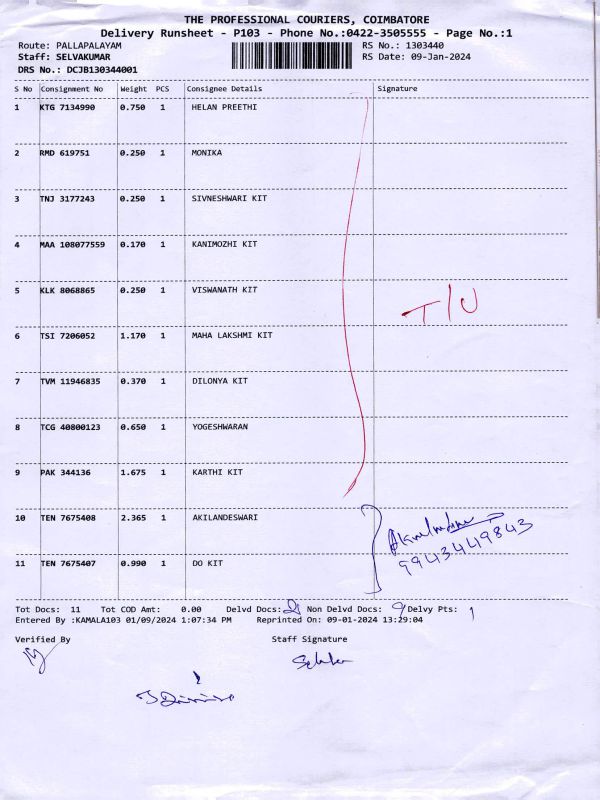 THE PROFESSIONAL COURIERS, COIMBATORE
Delivery Runsheet - P103 - Phone No.:0422-3505555 - Page No.:1
Route: PALLAPALAYAM RS No.: 1303440
Staff: SELVAKUMAR RS Date: 09-Jan-2024
DRS No.: DCJB130344001
S No Consignment No Weight PCS Consignee Details Signature
1 KTG 7134990 0.750 1 HELAN PREETHI
2 RMD 619751 0.250 1 MONIKA
3 TNJ 3177243 0.250 1 SIVNESHWARI KIT
4 MAA 108077559 0.170 1 KANIMOZHI KIT
5 KLK 8068865 0.250 1 VISWANATH KIT
T/U
6 TSI 7206052 1.170 1 MAHA LAKSHMI KIT
7 TVM 11946835 0.370 1 DILONYA KIT
8 TCG 40800123 0.650 1 YOGESHWARAN
9 PAK 344136 1.675 1 KARTHI KIT
10 TEN 7675408 2.365 1 AKILANDESWARI
9943449843
11 TEN 7675407 0.990 1 DO KIT
Tot Docs: 11 Tot COD Amt: 0.00 Delvd Docs: 2 Non Delvd Docs: 9 Delvy Pts: 1
Entered By :KAMALA103 01/09/2024 1:07:34 PM Reprinted On: 09-01-2024 13:29:04
Verified By Staff Signature